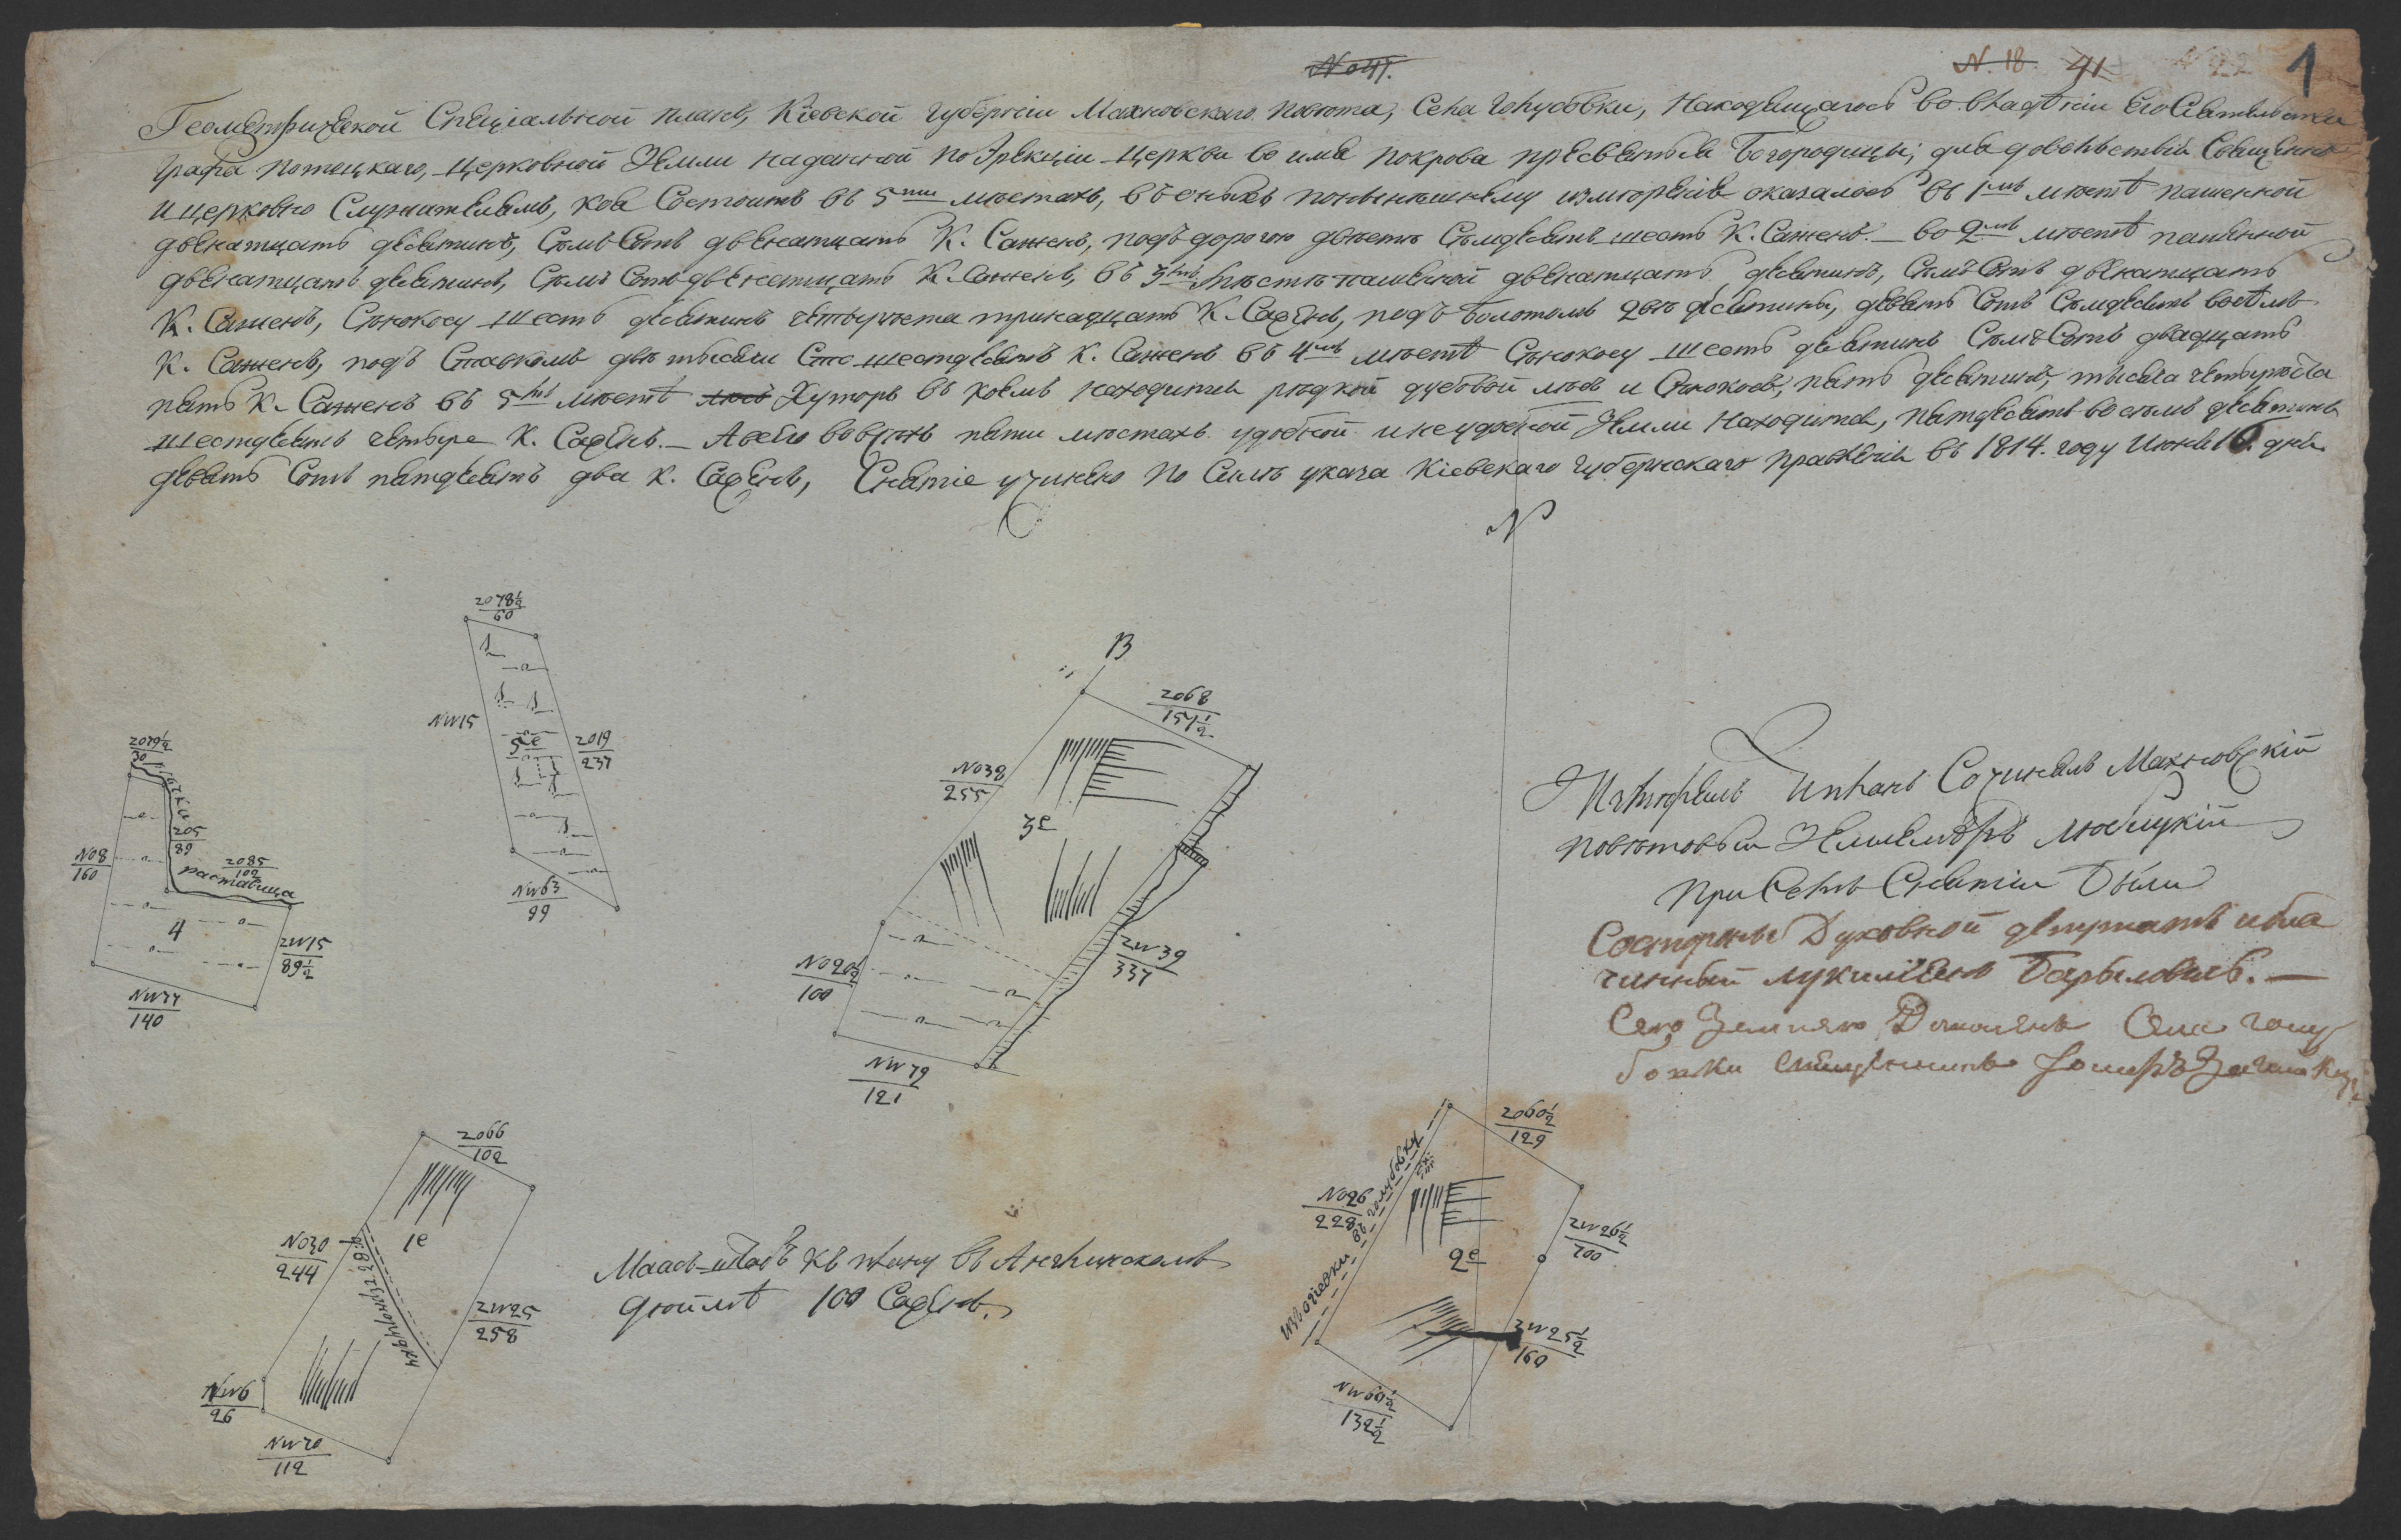 № 41.
N. 18. 41 1
Геометрической Специальной планъ, Кіевской губерніи Махновскаго повѣта, Села Голубовки, Находящагося во владѣніи Его Сіятельства
Графа потоцкаго, церковной Земли наданной по Эрекціи церкви во имя покрова пресвятыя Богородицы; для доволствія Священно
и церковно Служителямъ, коя Состоитъ въ 5ти мѣстахъ, въ оныхъ понынѣшнему измѣренію оказалось въ 1мъ мѣстѣ пашенной
двенатцать десятинъ, Семъ Сотъ двенатцать К. Саженъ, подъ дорогою двѣсти Семдесятъ шесть К. Саженъ. — во 2мъ мѣстѣ пашенной
двенатцать десятинъ, Семъ Сотъ двенатцать К. Саженъ, въ 3мъ мѣстѣ пашенной двенатцать десятинъ, Семъ Сотъ двенатцать
К. Саженъ, Сѣнокосу шесть десятинъ четыреста тринадцать К. Саженъ, подъ болотомъ двѣ десятины, девять Сотъ Семдесятъ восемъ
К. Саженъ, подъ Ставкомъ двѣ тысячи Сто шестдесятъ К. Саженъ въ 4мъ мѣстѣ Сѣнокосу шесть десятинъ Семъ Сотъ двадцать
пять К. Саженъ въ 5мъ мѣстѣ Хуторъ въ коемъ находится рѣдкой дубовой лѣсъ и Сѣнокосъ, пять десятинъ, тысяча четыреста
шестдесятъ четыре К. Саженъ. — А всего вовсѣхъ пяти мѣстахъ удобной и неудобной Земли Находится, пятдесятъ восемъ десятинъ
девять Сотъ пятдесятъ два К. Саженъ, Снятіе учинено по Силѣ указа Кіевскаго губернскаго правленія въ 1814. году Июня 16. дня
N
2078½
60
NW15
5е
2019
237
NW63
99
B
2068
157½
NO38
255
3е
NO20½
100
2W39
337
NW79
121
2079½
30
рѣчка
205
89
2085
102
раставица
NO8
160
4
2W15
89½
NW77
140
Измѣрялъ и планъ Сочинялъ Махновскій
повѣтовый Землемѣръ
При Семъ Снятіи были
Состороны Духовной депутатъ и бла
чинный Барыловичъ. —
Сею Землею Доволенъ Села голу
бовки Священникъ
2066
102
NO30
244
1е
2W25
258
NW6
26
NW70
112
Маасъ-штабъ къ плану въ Англинскомъ
дюймѣ 100 Саженъ.
2060½
129
NO26
228
въ голубовку
2е
2W26½
700
2W25½
160
NW60½
132½